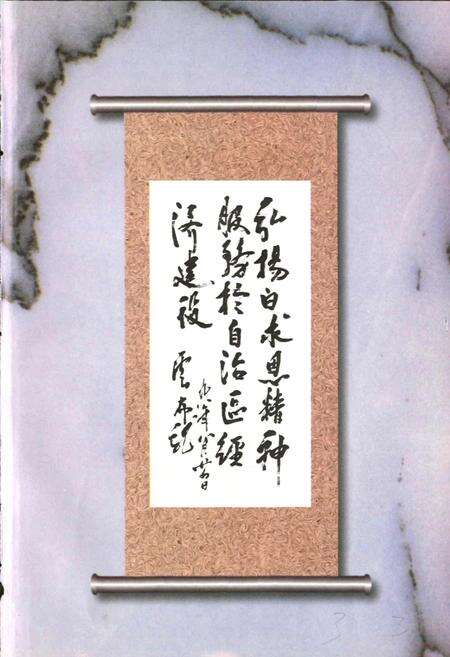 弘揚白求恩精神
服務於自治區經
濟建設 雲布龍
廿日
33